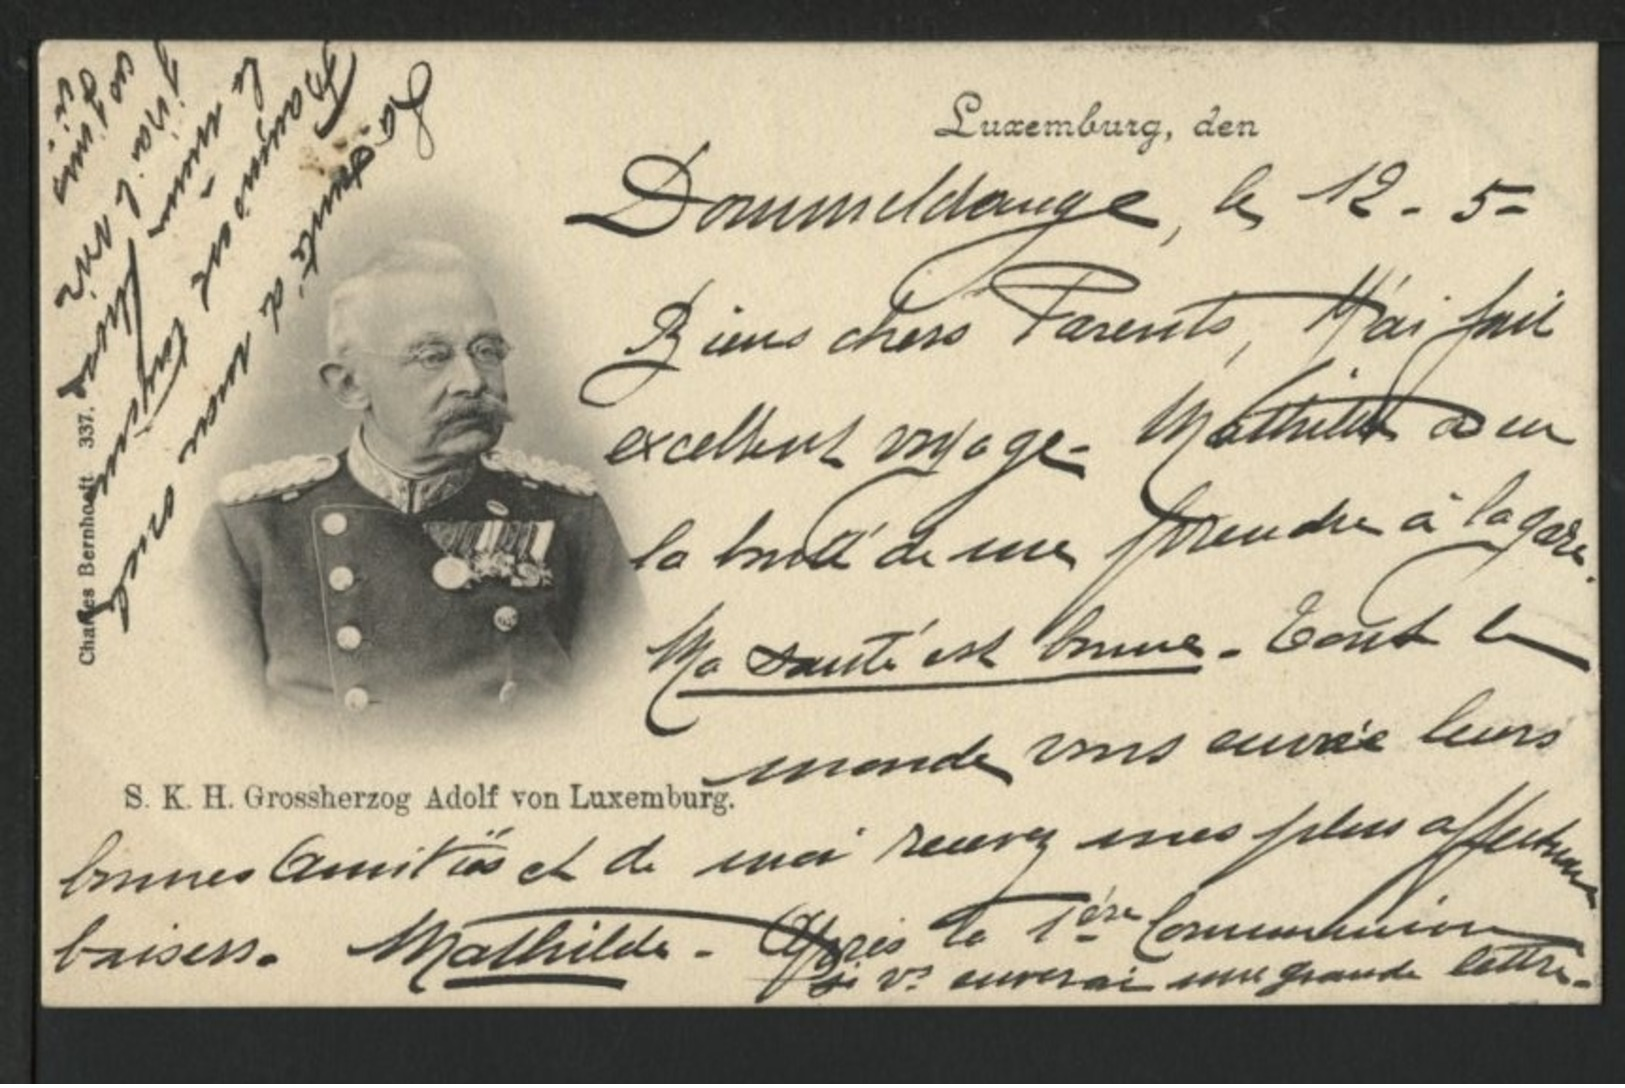 Luxemburg, den
Dommeldange, le 12 - 5 =
Biens chers Parents, J'ai fait
excellent voyage - Mathilde a eu
la bonté de me prendre à la gare.
Ma santé est bonne - Tout le
monde vous envoie leurs
bonnes Amitiés et de moi recevez mes plus affectueux
baisers. Mathilde - Après la 1ère Communion
je vs enverrai une grande lettre -
S. K. H. Grossherzog Adolf von Luxemburg.
Charles Bernhoeft 337.
La santé de mon oncle
François est toujours
la même
j'irai le voir